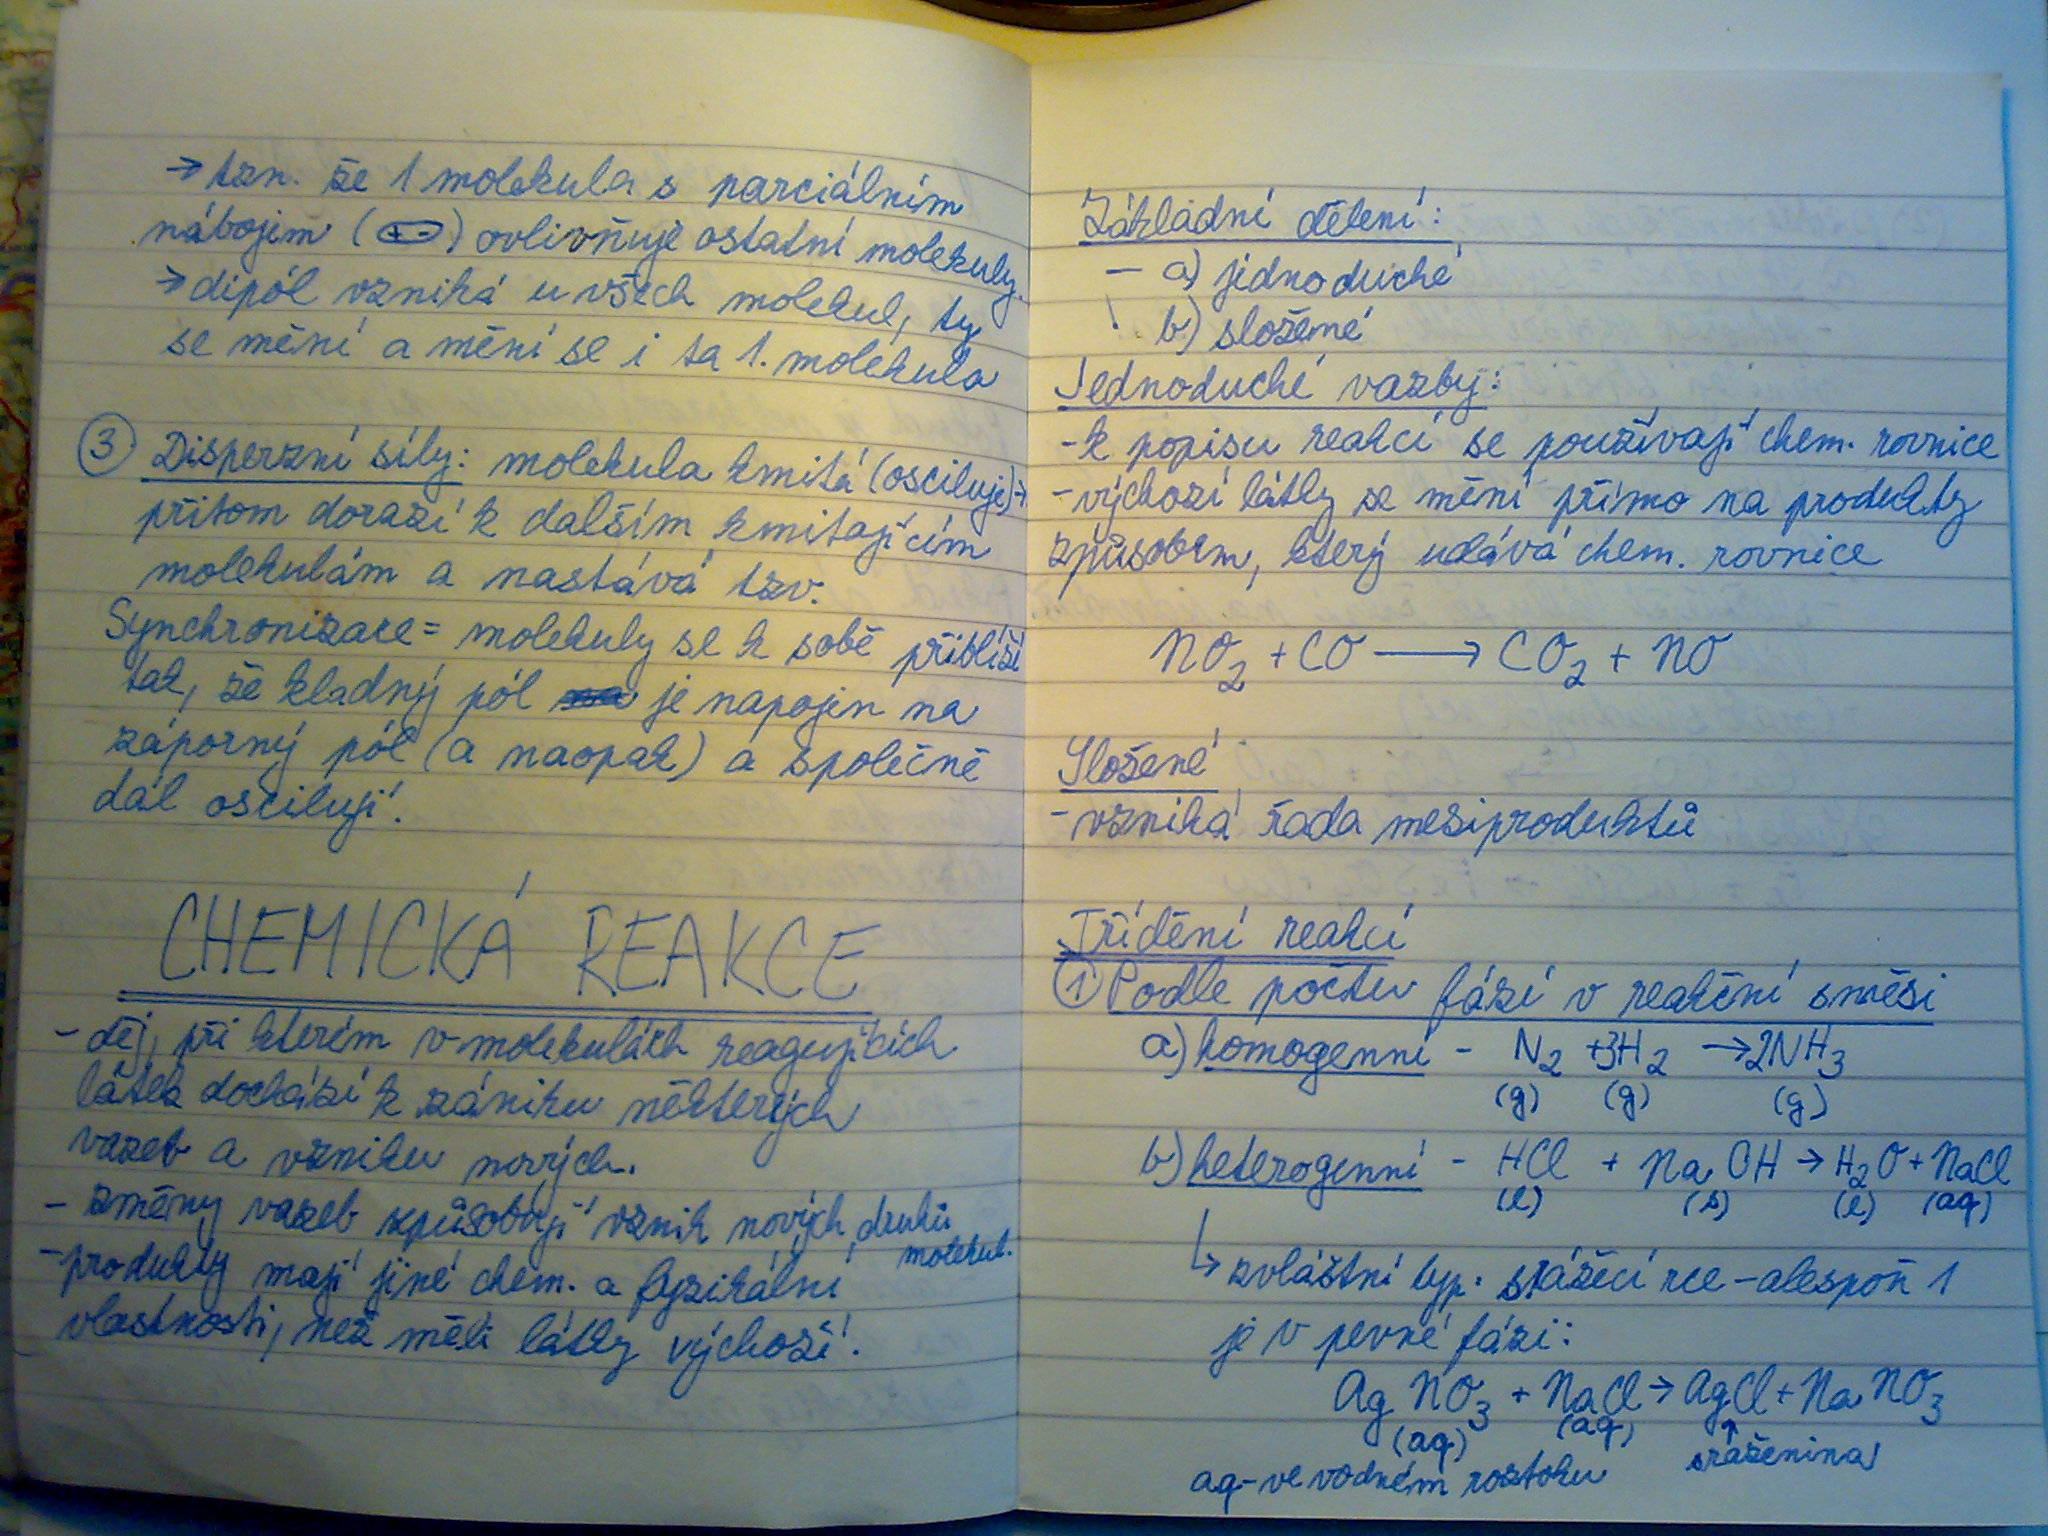 → tzn. že 1 molekula s parciálním
nábojem (+ -) ovlivňuje ostatní molekuly.
→ dipól vzniká u všech molekul, ty
se mění a mění se i ta 1. molekula
③ Disperzní síly: molekula kmitá (osciluje) →
přitom dorazí k dalším kmitajícím
molekulám a nastává tzv.
Synchronizace = molekuly se k sobě přiblíží
tak, že kladný pól je napojen na
záporný pól (a naopak) a společně
dál oscilují.
CHEMICKÁ REAKCE
- děj, při kterém v molekulách reagujících
látek dochází k zániku některých
vazeb a vzniku nových.
- změny vazeb způsobují vznik nových druhů
molekul.
- produkty mají jiné chem. a fyzikální
vlastnosti, než měli látky výchozí.
Základní dělení:
- a) jednoduché
b) složené
Jednoduché vazby:
- k popisu reakcí se používají chem. rovnice
- výchozí látky se mění přímo na produkty
způsobem, který udává chem. rovnice
NO₂ + CO → CO₂ + NO
Složené
- vzniká řada meziproduktů
Třídění reakcí
① Podle počtu fází v reakční směsi
a) homogenní - N₂ + 3H₂ → 2NH₃
(g) (g) (g)
b) heterogenní - HCl + NaOH → H₂O + NaCl
(l) (s) (l) (aq)
↳ zvláštní typ: srážecí rce - alespoň 1
je v pevné fázi:
AgNO₃ + NaCl → AgCl + NaNO₃
(aq) (aq) ↑
sraženina
aq - ve vodném roztoku